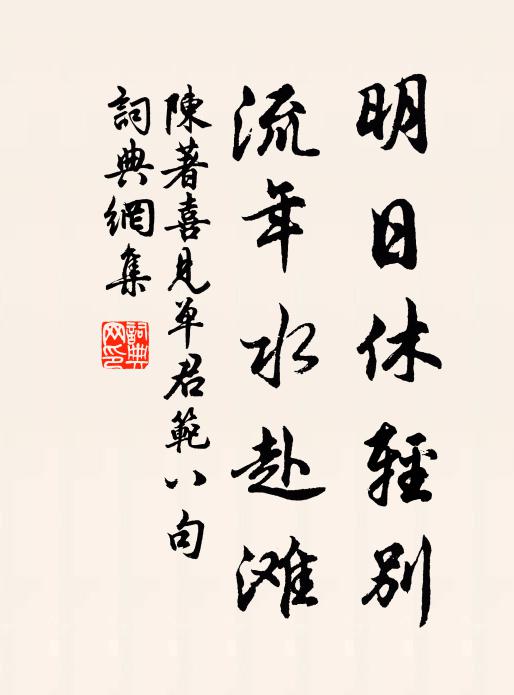 明日休輕別
流年水赴滩
陳著喜見单君範八句
詞典網集
詞典網印